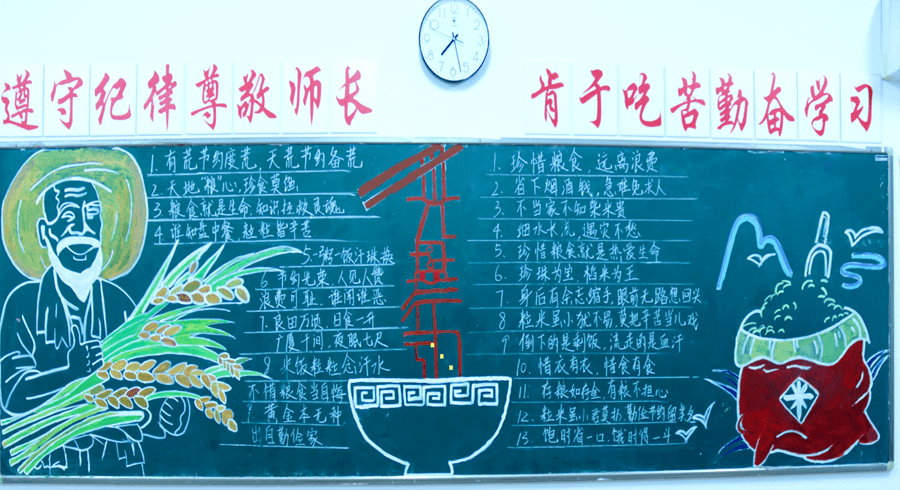 遵守纪律尊敬师长
肯于吃苦勤奋学习
1. 有荒节约度荒，天荒节约备荒
2. 天地"粮"心，珍食莫蚀
3. 粮食就是生命，知识拯救灵魂
4. 谁知盘中餐 粒粒皆辛苦
5. 一粥一饭汗珠换
6 节约光荣 人见人赞
浪费可耻
7. 良田万顷，日食一升
广厦千间，夜眠七尺
8 米饭粒粒念汗水
不惜粮食当自悔
9 黄金本无种
出自勤俭家
光盘行动
1. 珍惜粮食，远离浪费
2. 省下烟酒钱，急难免求人
3. 不当家不知柴米贵
4. 细水长流，遇灾不愁
5. 珍惜粮食就是热爱生命
6. 珍珠为宝，稻米为王
7 身后有余忘缩手，眼前无路想回头
8 粒米虽小犹不易，莫把辛苦当儿戏
9 倒下的是剩饭，流走的是血汗
10. 惜衣有衣，惜食有食
11. 存粮如存金，有粮不担心
12. 粒米虽小君莫扔 勤俭节约留美名
13. 饱时省一口，饿时得一斗
米